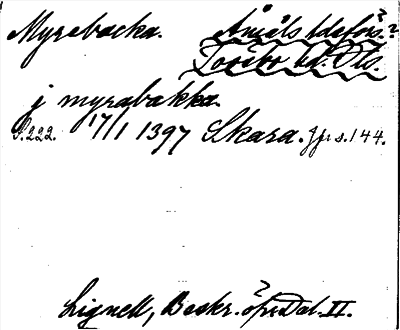 Myrebacka. Åmåls ldsförs.?
Tössbo hd. Dls.
j myrabakka.
S. 222. 17/1 1397 Skara. Jfr s. 144.
Lignell, Beskr. öfver Dal. II.